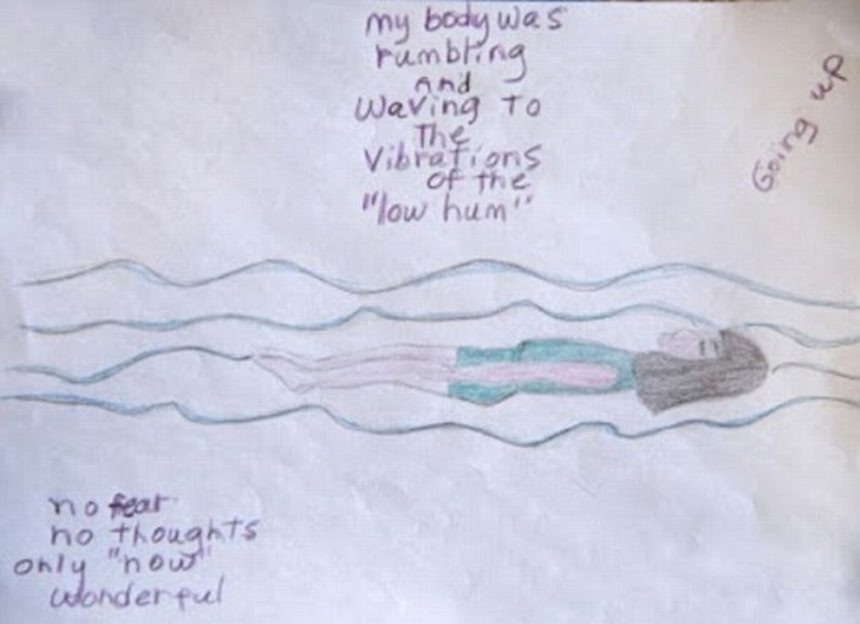 my body was
rumbling
and
waving to
the
vibrations
of the
"low hum"
Going up
no fear
no thoughts
only "now"
wonderful